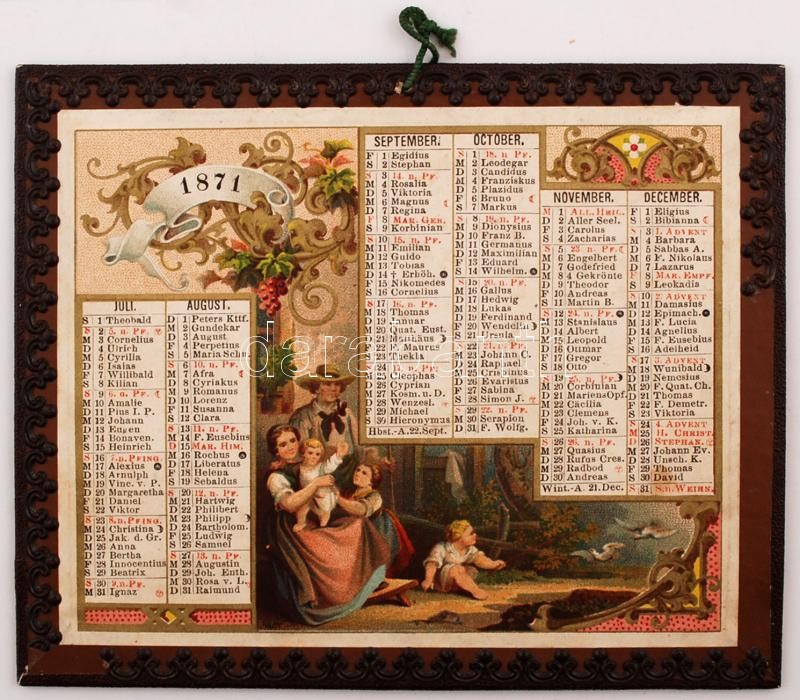 1871
JULI.
S 1 Theobald
S 2 5. n. Pf.
M 3 Cornelius
D 4 Ulrich
M 5 Cyrilla
D 6 Isaias
F 7 Willibald
S 8 Kilian
S 9 6. n. Pf.
M 10 Amalie
D 11 Pius I. P.
M 12 Johann
D 13 Eugen
F 14 Bonaven.
S 15 Heinrich
S 16 7. n. Pfing.
M 17 Alexius
D 18 Arnulph
M 19 Vinc. v. P.
D 20 Margaretha
F 21 Daniel
S 22 Viktor
S 23 8. n. Pfing.
M 24 Christina
D 25 Jak. d. Gr.
M 26 Anna
D 27 Bertha
F 28 Innocentius
S 29 Beatrix
S 30 9. n. Pf.
M 31 Ignaz
AUGUST.
D 1 Peters Kttf.
M 2 Gundekar
D 3 August
F 4 Perpetius
S 5 Maria Schn
S 6 10. n. Pf.
M 7
D 8 Cyriakus
M 9 Romanus
D 10 Lorenz
F 11 Susanna
S 12 Clara
S 13 11. n. Pf.
M 14 F. Eusebius
D 15 Mar. Him.
M 16 Rochus
D 17 Liberatus
F 18 Helena
S 19 Sebaldus
S 20 12. n. Pf.
M 21 Hartwig
D 22 Philibert
M 23 Philipp
D 24 Bartholom.
F 25 Ludwig
S 26 Samuel
S 27 13. n. Pf.
M 28 Augustin
D 29 Joh. Enth.
M 30 Rosa v. L.
D 31 Raimund
SEPTEMBER.
F 1 Egidius
S 2 Stephan
S 3 14. n. Pf.
M 4 Rosalia
D 5 Viktoria
M 6 Magnus
D 7 Regina
F 8 Mar. Geb.
S 9 Korbinian
S 10 15. n. Pf.
M 11 Emilian
D 12 Guido
M 13 Tobias
D 14 † Erhöh.
F 15 Nikomedes
S 16 Cornelius
S 17 16. n. Pf.
M 18 Thomas
D 19 Januar
M 20 Quat. Eust.
D 21 Matthäus
F 22 F. Maurus
S 23 Thekla
S 24 17. n. Pf.
M 25 Cleophas
D 26 Cyprian
M 27 Kosm. u. D.
D 28 Wenzesl.
F 29 Michael
S 30 Hieronymus
Hbst.-A. 22. Sept.
OCTOBER.
S 1 18. n. Pf.
M 2 Leodegar
D 3 Candidus
M 4 Franziskus
D 5 Plazidus
F 6 Bruno
S 7 Markus
S 8 19. n. Pf.
M 9 Dionysius
D 10 Franz B.
M 11 Germanus
D 12 Maximilian
F 13 Eduard
S 14 Wilhelm
S 15 20. n. Pf.
M 16 Gallus
D 17 Hedwig
M 18 Lukas
D 19 Ferdinand
F 20 Wendelin
S 21 Ursula
S 22 21. n. Pf.
M 23 Johann C.
D 24 Raphael
M 25 Crispinus
D 26 Evaristus
F 27 Sabina
S 28 Simon J.
S 29 22. n. Pf.
M 30 Serapion
D 31 F. Wolfg.
NOVEMBER.
M 1 All. Heil.
D 2 Aller Seel.
F 3 Carolus
S 4 Zacharias
S 5 23. n. Pf.
M 6 Engelbert
D 7 Godefried
M 8 4 Gekrönte
D 9 Theodor
F 10 Andreas
S 11 Martin B.
S 12 24. n. Pf.
M 13 Stanislaus
D 14 Albert
M 15 Leopold
D 16 Otmar
F 17 Gregor
S 18 Otto
S 19 25. n. Pf.
M 20 Corbinian
D 21 Mariens Opf.
M 22 Cäcilia
D 23 Clemens
F 24 Joh. v. K.
S 25 Katharina
S 26 26. n. Pf.
M 27 Quasius
D 28 Rufus Cres.
M 29 Radbod
D 30 Andreas
Wint.-A. 21. Dec.
DECEMBER.
F 1 Eligius
S 2 Bibianna
S 3 1. Advent
M 4 Barbara
D 5 Sabbas A.
M 6 F. Nikolaus
D 7 Lazarus
F 8 Mar. Empf.
S 9 Leokadis
S 10 2. Advent
M 11 Damasius
D 12 Epimach.
M 13 F. Lucia
D 14 Agnellus
F 15 F. Eusebius
S 16 Adelheid
S 17 3. Advent
M 18 Wunibald
D 19 Nemosius
M 20 F. Quat. Ch.
D 21 Thomas
F 22 F. Demetr.
S 23 Viktoria
S 24 4 Advent
M 25 H. Christ.
D 26 Stephan.
M 27 Johann Ev.
D 28 Unsch. K.
F 29 Thomas
S 30 David
S 31 S. n. Weihn.